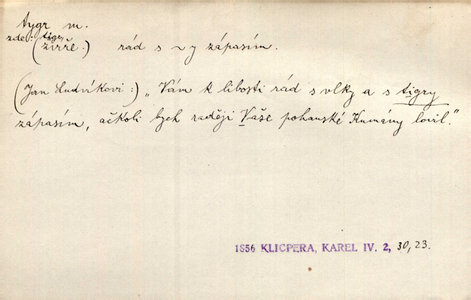 tygr m.
zde: tigr
(zíře:) rád s ~y zápasím.
(Jan Ludvíkovi:) „Vám k libosti rád s vlky a s tigry
zápasím, ačkoli bych raději Vaše pohanské Kumány lovil."
1856 KLICPERA, KAREL IV. 2, 30, 23.